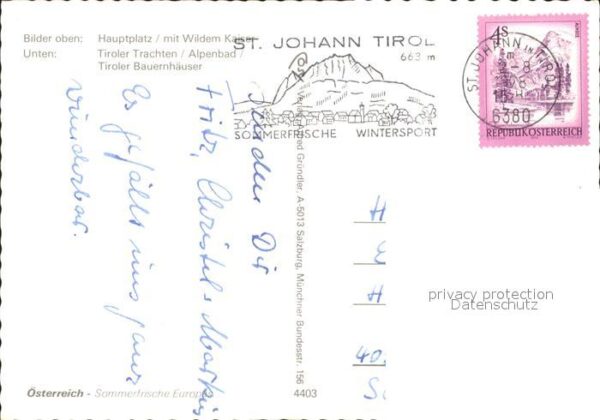 Bilder oben: Hauptplatz / mit Wildem Kaiser
Unten: Tiroler Trachten / Alpenbad /
Tiroler Bauernhäuser
ST. JOHANN TIROL
663 m
SOMMERFRISCHE WINTERSPORT
4S
ST. JOHANN IN TIROL
6380
REPUBLIK ÖSTERREICH
Es gefällt uns ganz
wunderbar.
Dir
Fritz, Christel + Markus
Gründler, A-5013 Salzburg, Münchner Bundesstr. 156
H
H
40
privacy protection
Datenschutz
Österreich - Sommerfrische Europas
4403